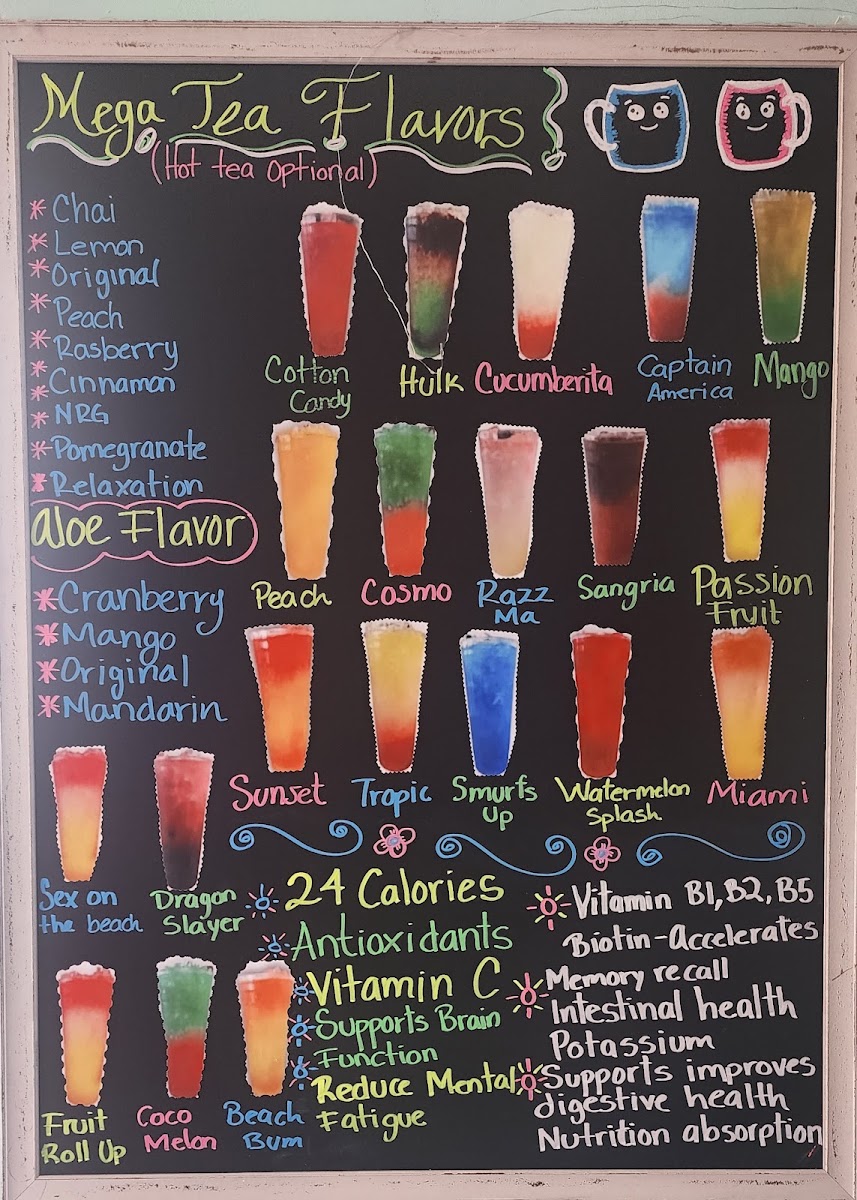 Mega Tea Flavors
(Hot tea Optional)
* Chai
* Lemon
* Original
* Peach
* Rasberry
* Cinnamon
* NRG
* Pomegranate
* Relaxation
aloe Flavor
* Cranberry
* Mango
* Original
* Mandarin
Cotton
Candy
Hulk
Cucumberita
Captain
America
Mango
Peach
Cosmo
Razz
Ma
Sangria
Passion
Fruit
Sunset
Tropic
Smurfs
Up
Watermelon
Splash
Miami
Sex on
the beach
Dragon
Slayer
Fruit
Roll Up
Coco
Melon
Beach
Bum
24 Calories
Antioxidants
Vitamin C
Supports Brain
Function
Reduce Mental
Fatigue
Vitamin B1, B2, B5
Biotin-Accelerates
Memory recall
Intestinal health
Potassium
Supports improves
digestive health
Nutrition absorption